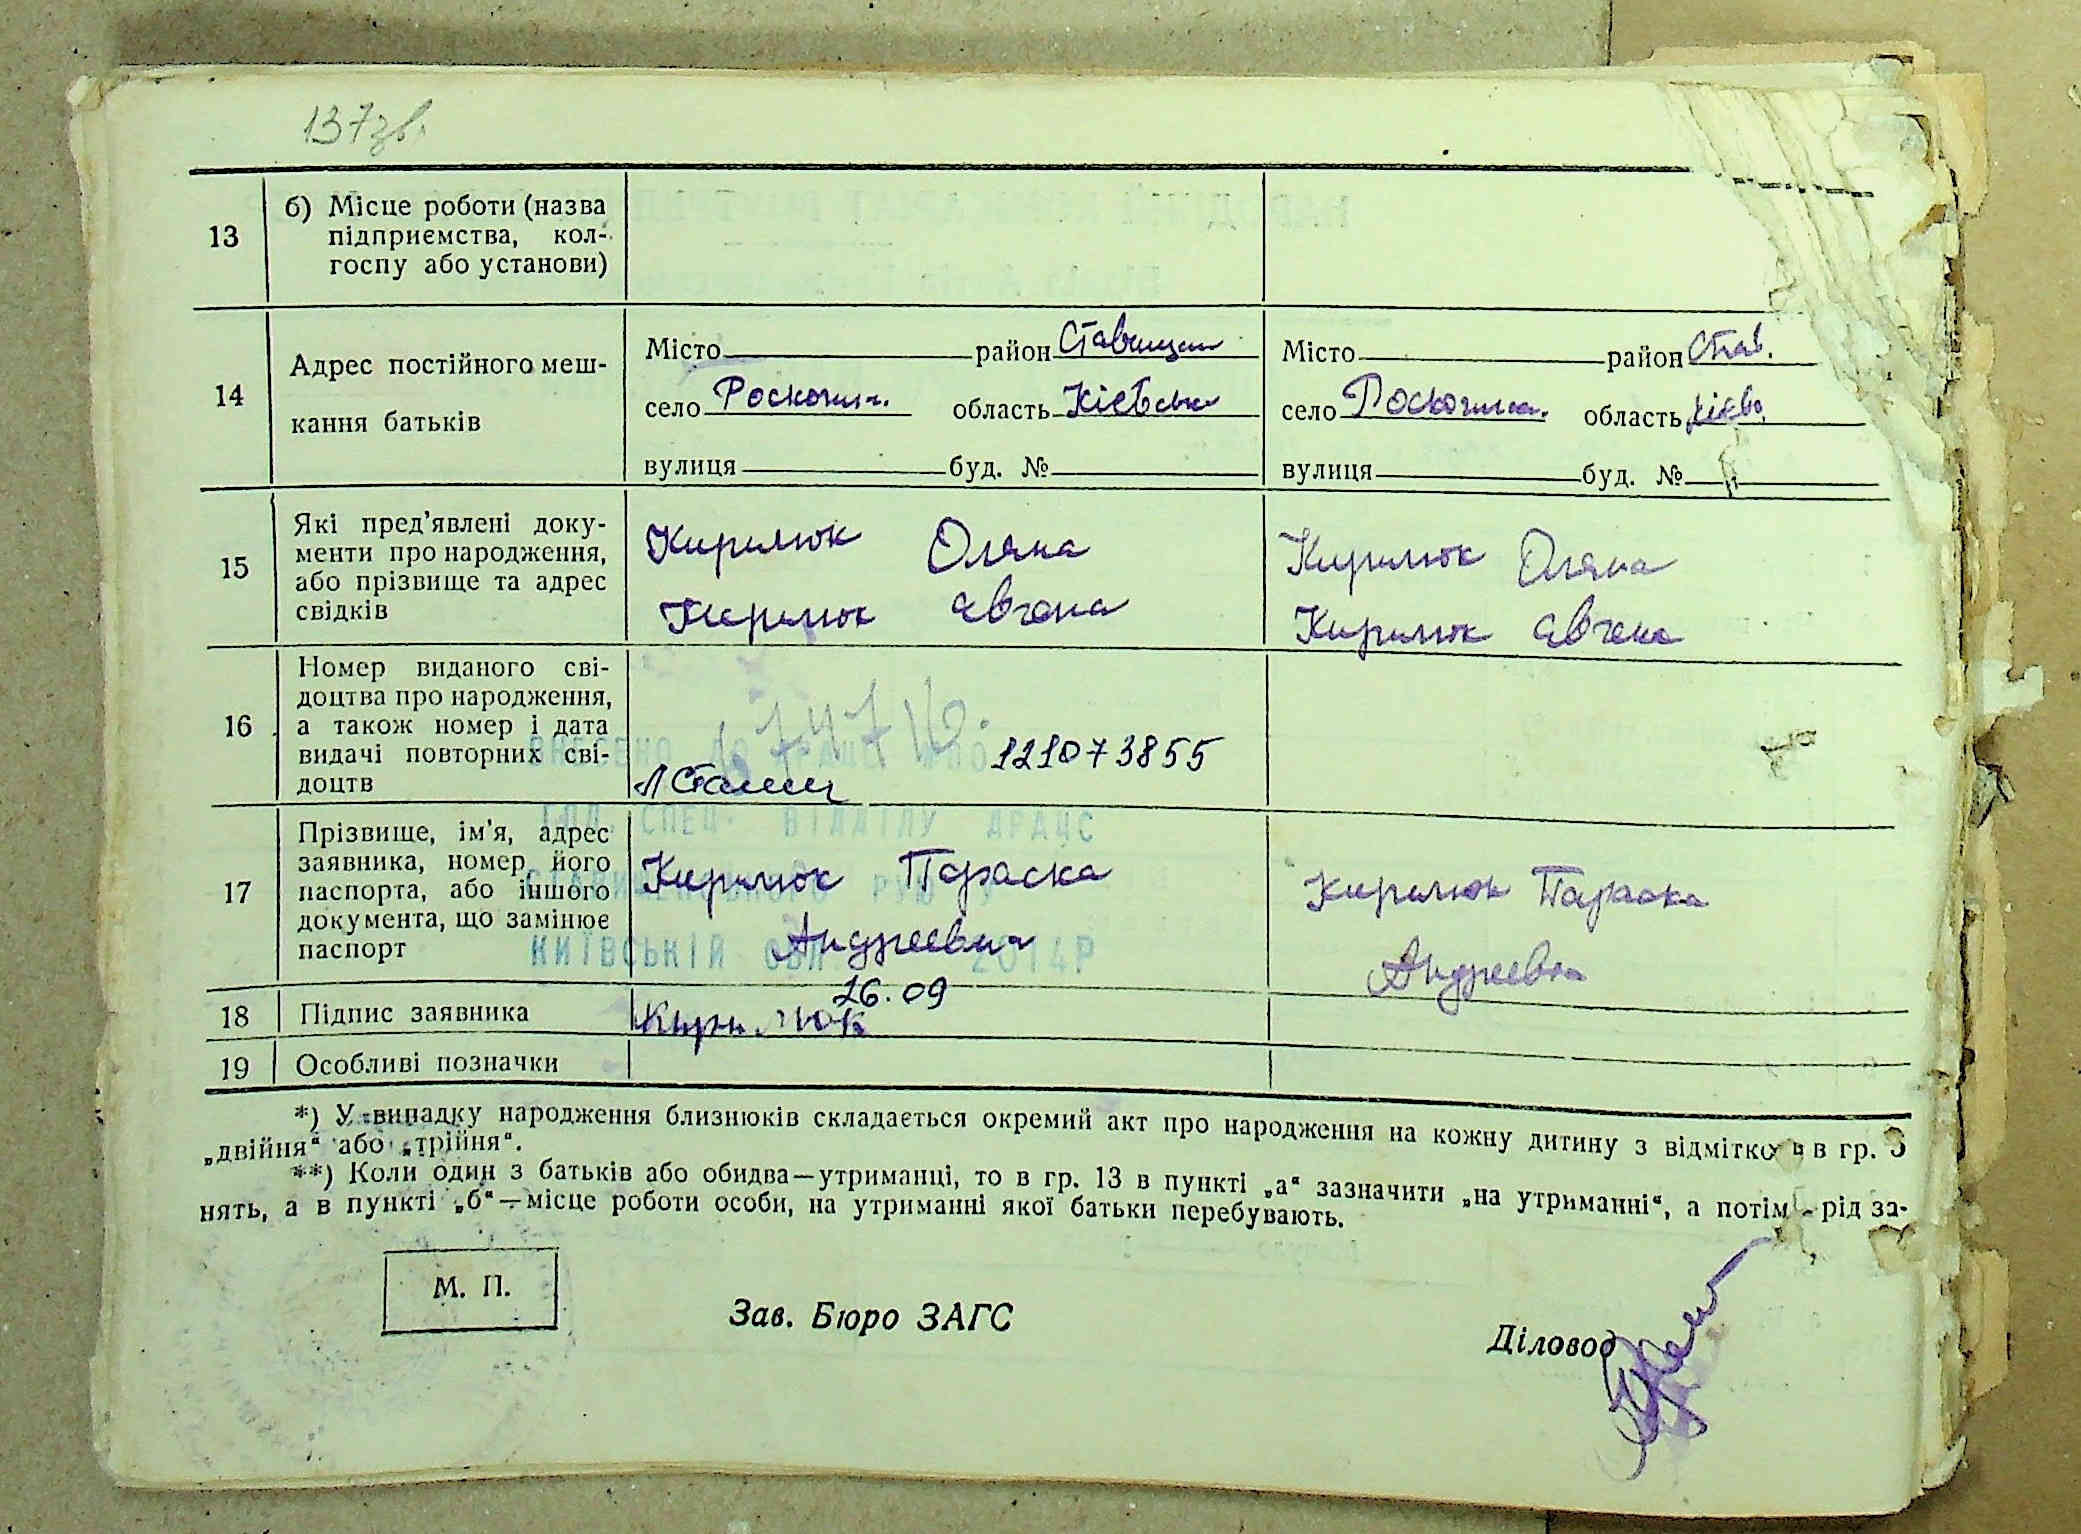 137зв.
13
б) Місце роботи (назва
підприємства, кол-
госпу або установи)
14
Адрес постійного меш-
кання батьків
Місто район Ставищан
село Роскошн. область Кіевськ
вулиця буд. №
Місто район Став.
село Роскошна. область Кієво
вулиця буд. №
15
Які пред'явлені доку-
менти про народження,
або прізвище та адрес
свідків
Кирилюк Оляна
Кирилюк Євгена
Кирилюк Оляна
Кирилюк Євгена
16
Номер виданого сві-
доцтва про народження,
а також номер і дата
видачі повторних сві-
доцтв
ВНЕСЕНО ДО ДРАЦС
121073855
17
Прізвище, ім'я, адрес
заявника, номер його
паспорта, або іншого
документа, що замінює
паспорт
СПЕЦ. ВІДДІЛУ ДРАЦС
СТАВИЩЕНСЬКОГО РУЮ
КИЇВСЬКІЙ ОБЛ. 2014Р
Кирилюк Параска
Андреевна
Кирилюк Параска
Андреевна
18
Підпис заявника
26.09
Кирилюк
19
Особливі позначки
*) У випадку народження близнюків складається окремий акт про народження на кожну дитину з відміткою в гр. 3
„двійня“ або „трійня“.
**) Коли один з батьків або обидва—утриманці, то в гр. 13 в пункті „а“ зазначити „на утриманні“, а потім - рід за-
нять, а в пункті „б“—місце роботи особи, на утриманні якої батьки перебувають.
М. П.
Зав. Бюро ЗАГС
Діловод